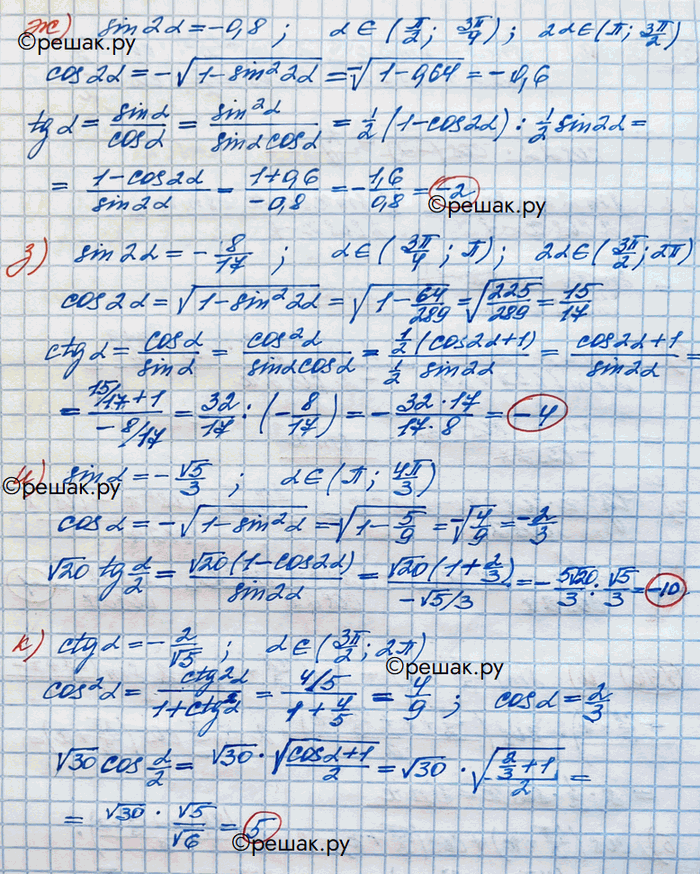 ж) sin2α = -0,8 ; α∈(π/2; 3π/4) ; 2α∈(π; 3π/2)
©решак.ру
cos2α = -√(1-sin²2α) = -√(1-0,64) = -0,6
tgα = sinα/cosα = sin²α/(sinα cosα) = 1/2 (1-cos2α) : 1/2 sin2α =
= (1-cos2α)/sin2α = (1+0,6)/(-0,8) = -1,6/0,8 = -2
©решак.ру
з) sin2α = -8/17 ; α∈(3π/4; π) ; 2α∈(3π/2; 2π)
cos2α = √(1-sin²2α) = √(1-64/289) = √(225/289) = 15/17
ctgα = cosα/sinα = cos²α/(sinα cosα) = (1/2 (cos2α+1))/(1/2 sin2α) = (cos2α+1)/sin2α =
= (15/17+1)/(-8/17) = 32/17 · (-8/17) = -(32·17)/(17·8) = -4
и) sinα = -√5/3 ; α∈(π; 4π/3)
©решак.ру
cosα = -√(1-sin²α) = -√(1-5/9) = -√(4/9) = -2/3
√20 tg α/2 = √20(1-cos2α)/sin2α = √20(1+2/3)/(-√5/3) = -5√20/3 : √5/3 = -10
к) ctgα = -2/√5 ; α∈(3π/2; 2π)
©решак.ру
cos²α = ctg²α/(1+ctg²α) = (4/5)/(1+4/5) = 4/9 ; cosα = 2/3
√30 cos α/2 = √30 · √((cosα+1)/2) = √30 · √((2/3+1)/2) =
= √30 · √5/√6 = 5
©решак.ру